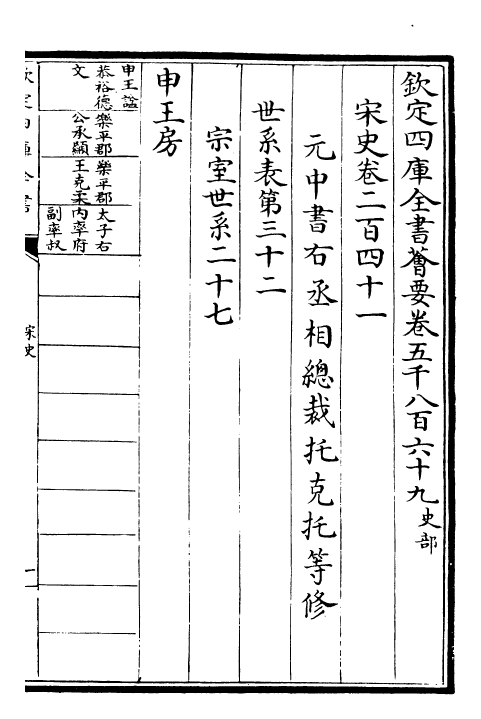 欽定四庫全書薈要卷五千八百六十九史部
宋史卷二百四十一
元中書右丞相總裁托克托等修
世系表第三十二
宗室世系二十七
申王房
申王諡
恭裕德
文
樂平郡
公承顯
樂平郡
王克柔
太子右
內率府
副率叔
欽定四庫全書
宋史
一